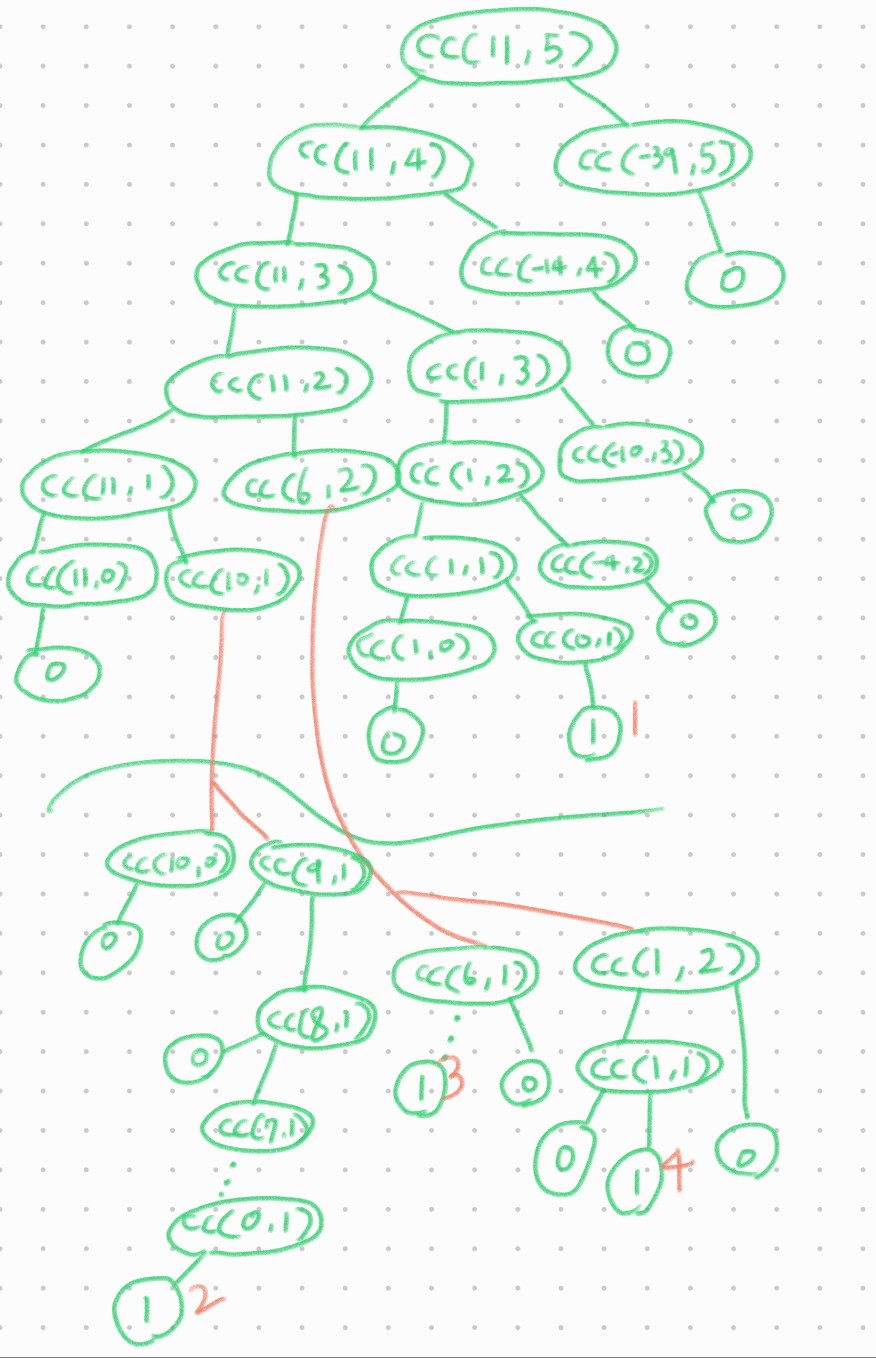 cc(11,5)
cc(11,4) cc(-39,5)
cc(11,3) cc(-14,4) 0
cc(11,2) cc(1,3) 0
cc(11,1) cc(6,2) cc(1,2) cc(-10,3)
0
cc(11,0) cc(10,1) cc(1,1) cc(-4,2)
0 cc(1,0) cc(0,1) 0
0 1 1
cc(10,0) cc(9,1)
0 0 cc(6,1) cc(1,2)
0 cc(8,1) 1 3 0 cc(1,1)
cc(7,1) 0 1 4 0
cc(0,1)
1 2